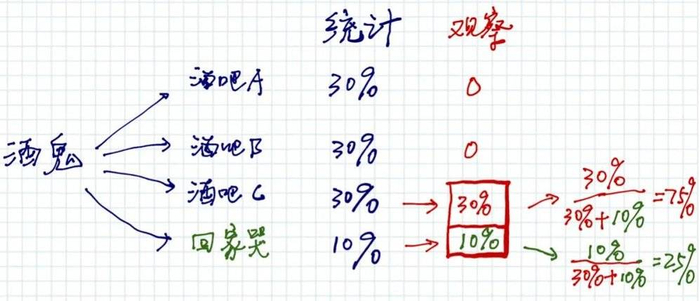 统计 观察
酒吧A 30% 0
酒鬼
酒吧B 30% 0
酒吧C 30% → 30% → 30%/30%+10% =75%
回家哭 10% → 10% → 10%/30%+10% =25%